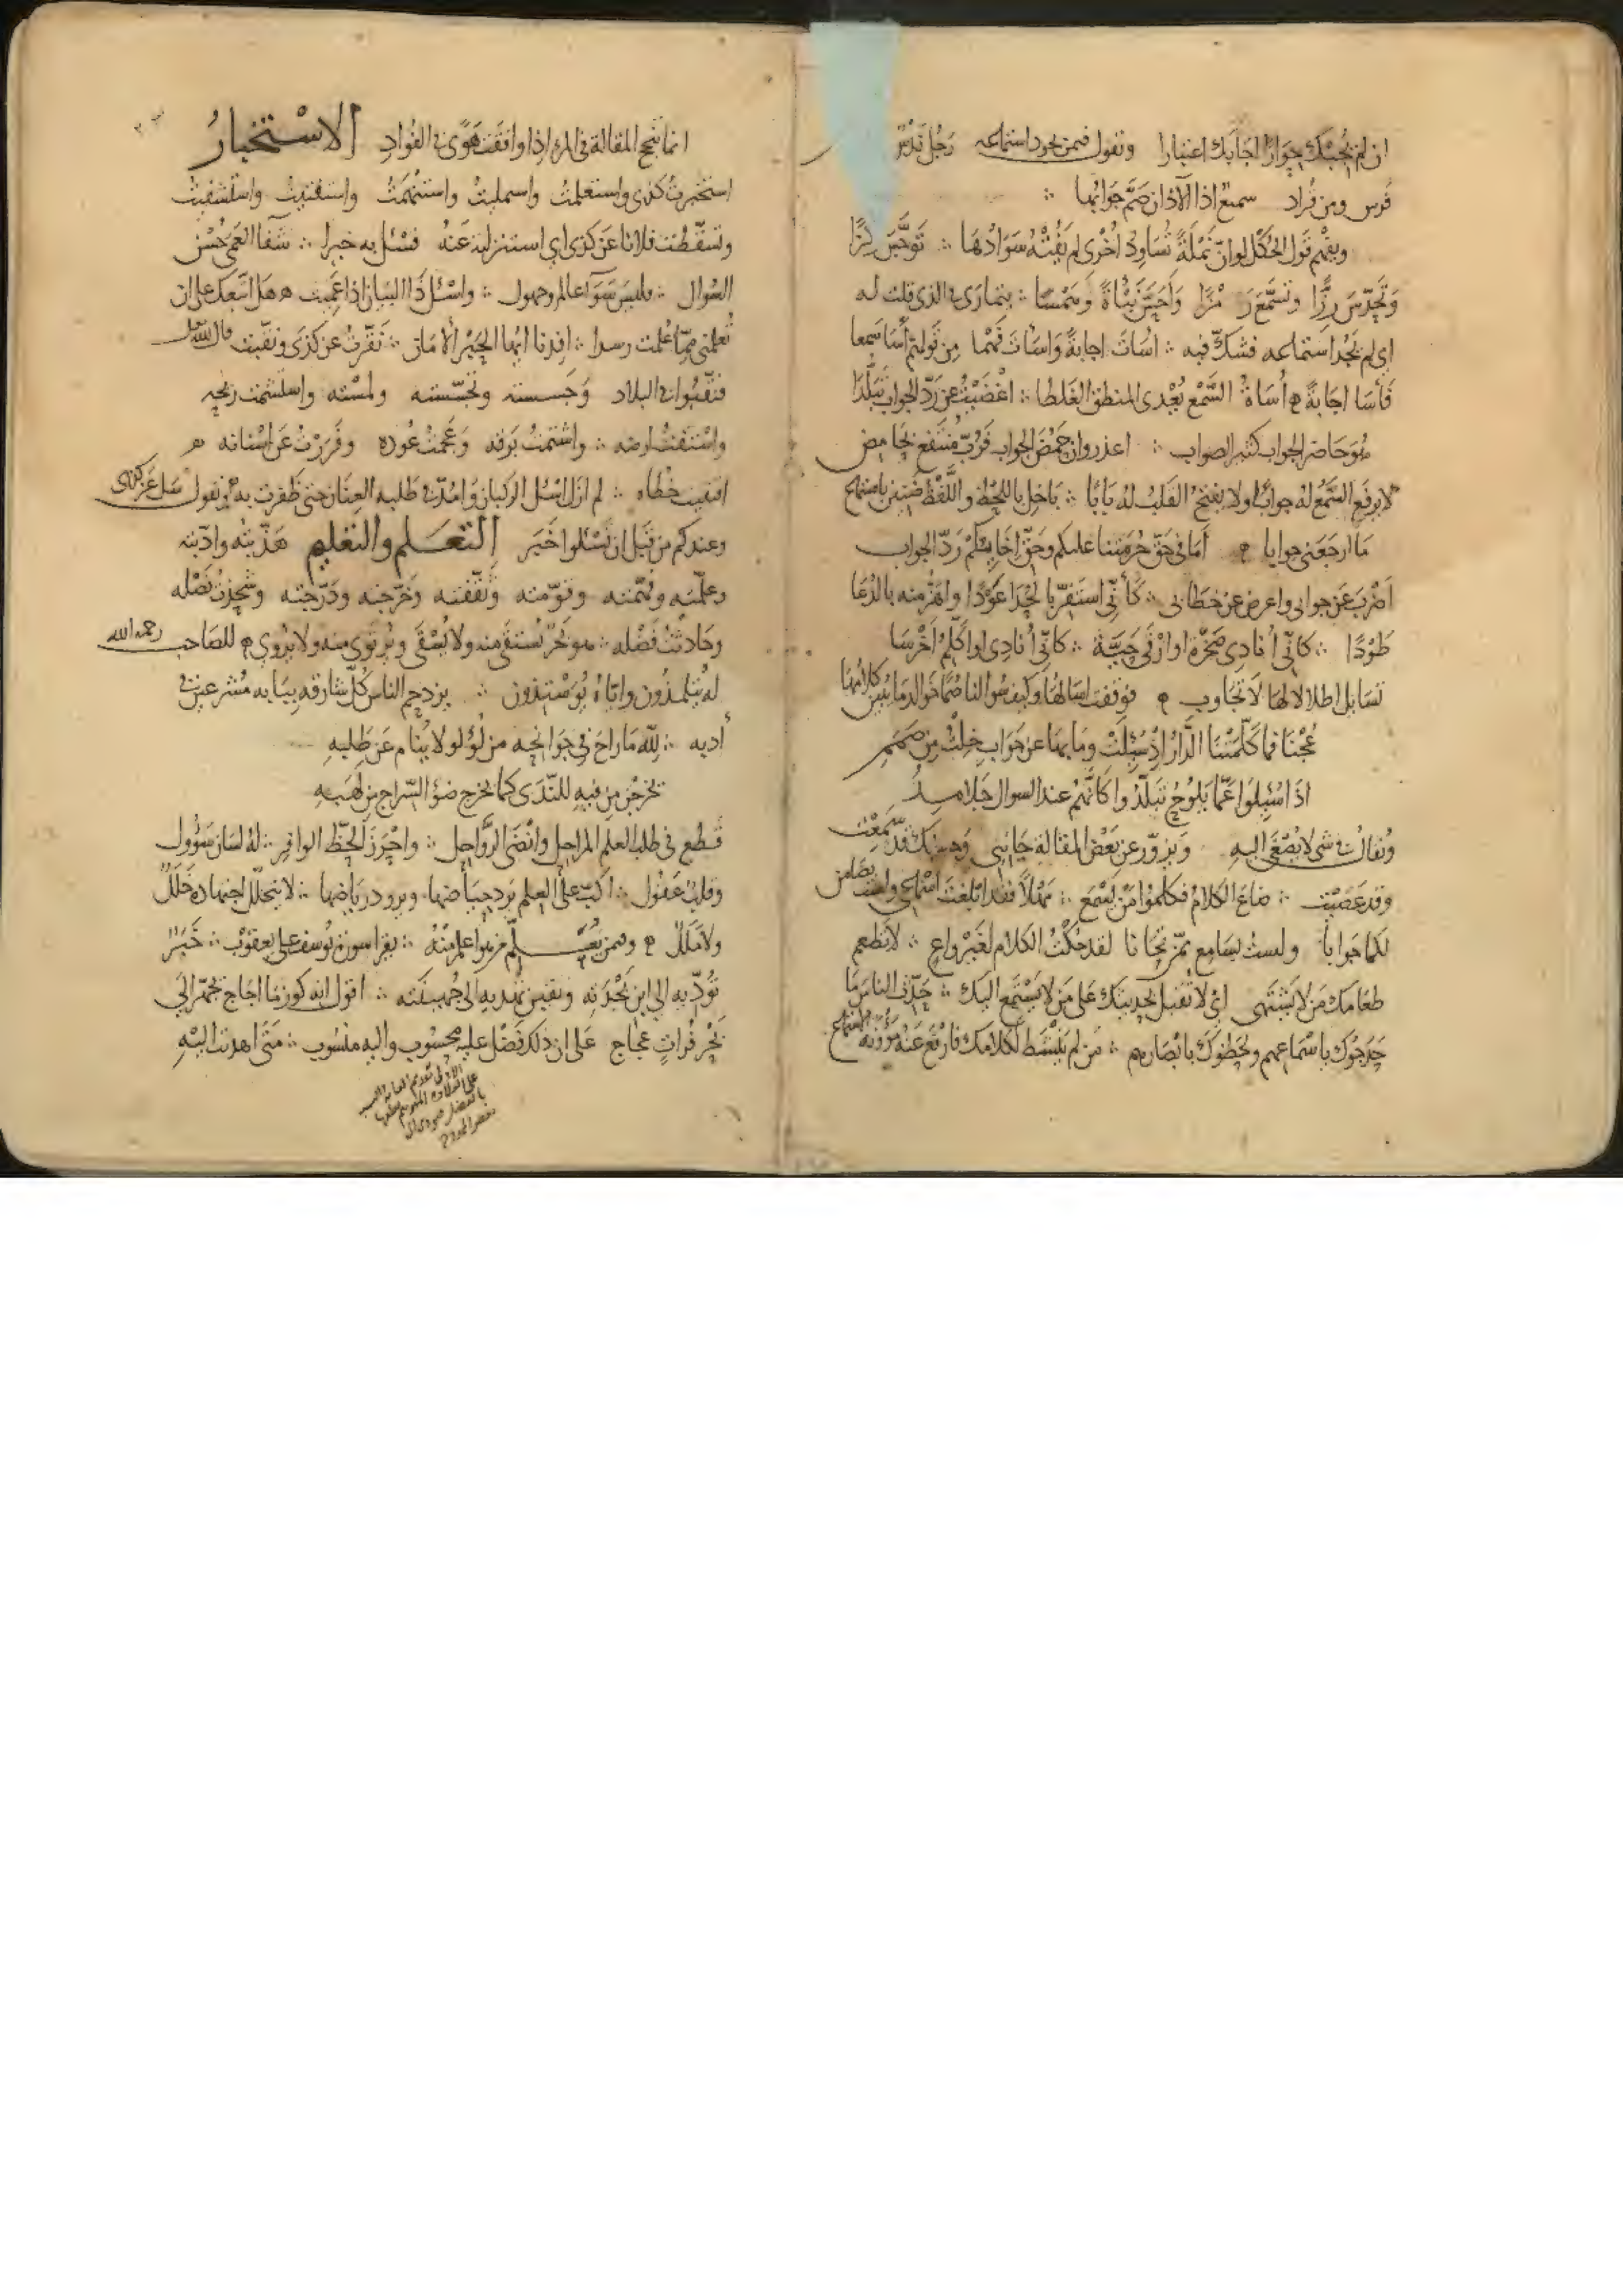 ان لم تجبك جوارا اجابتك اعتبارا وتقول فيمن يجود استماعه رجل ندس
فرس ومن قراد سميع اذا الآذان صم جوابها ∴
ويفهم قول الحكل لو ان نملة تساود اخرى لم يفته سوادها ∴ توجس ركزا
وتحدس رزا وتسمع رمزا واحس نبأة وهمسا ∴ يتمارى في الذي قلت له
اي لم يجد استماعه فشك فيه ∴ اساءت اجابة واساءت فهما من قولهم أسا سمعا
فأسا اجابة ه أساة السمع يعدى المنطق الغلطا ∴ اغضيت عن رد الجواب تبلدا
هو حاضر الجواب كثير الصواب ∴ اعذر وان حمض الجواب فرب منتفع بحامض
لا يرفع السمع له جوابا ولا يفتح القلب له بابا ∴ يا خل باللحظ واللفظ ضنين باستماع
ما ارجعني جوابا ه أما في حق حرمتنا عليكم وحق اخائكم رد الجواب
اضرب عن جوابي واعرض عن خطابي ∴ كأني استقر بالحدا عودا واهز منه بالدعا
طودا ∴ كأني أنادي صخرة او ارقي حية ∴ كأني أنادي او اكلم اخرسا
تسايل اطلالا لها لا تجاوب ه فوقفت اسالها وكيف سوالنا صما خوالد ما يبين كلامها
عجنا فما كلمتنا الدار اذ سئلت وما بها عن جواب خلت من صمم
اذا سئلوا عما يلوح تبلدوا كانهم عند السوال جلامد
وتقال في شي لا يصغى اليه ويزور عن بعض المقالة جانبي وهبك قد سمعت
وقد عصيت ∴ ضاع الكلام فكلموا من يسمع ∴ مهلا فقد ابلغت اسماعي
لكما جوابا ولست بسامع لقد حكت الكلام لغير واع ∴ لا تطعم
طعامك من لا يشتهي اي لا تقبل بحديثك على من لا يستمع اليك ∴ حدث الناس ما
حدجوك باسماعهم ولحظوك بابصارهم ∴ من لم ينشط لكلامك فارفع عنه مؤونة الاستماع
انما تنجح المقالة في المرء اذا وافقت هوى في الفؤاد الاستخبار
استخبرت كذى واستعلمت واستمليت واستفهمت واستفتيت واستشفيت
وتسقطت فلانا عن كذى اي استنزلته عنه فسئل به خبيرا ∴ شفا العمى حسن
السوال ∴ فليس سوآ عالم وجهول ∴ واسئل ذا البيان اذا عميت ه هل اتبعك على ان
تعلمني مما علمت رسدا ∴ افدنا ايها الحبر الامام ∴ نقرت عن كذى ونقبت قال الله تعالى
فنقبوا في البلاد وجسسته وتجسسته ولمسته واستشممت ريحه
واستنفضت ارضه ∴ واشتمت برقه وعجمت عوده وفررت عن اسنانه ه
اقتفيت خطاه ∴ لم ازل اسئل الركبان وامد في طلبه العنان حتى ظفرت به وتقول سل عن كذى
وعندكم من قبل ان تسئلوا خبر التعلم والتعليم هذبته وادبته
وعلمته وفهمته وقومته وثقفته وخرجته ودرجته وشحذت نصله
وحادثت فضله ∴ هو بحر يستقى منه ولا يسقى ويرتوى منه ولا يروى ه للصاحب رحمه الله
له يتلمذون واياه يوستذون ∴ يزدحم الناس كل شارقة ببابه مشرعين في
أدبه ∴ لله ما راح في جوانحه من لؤلؤ لا ينام عن طلبه
يخرجن من فيه للندى كما يخرج ضؤ السراج من لهبه
قطع في طلب العلم المراحل وانضى الرواحل ∴ واحرز الحظ الوافر ∴ له لسان سؤول
وقلب عقول ∴ اكب على العلم يرد حياضها ويرود رياضها ∴ لا يتخلل اجتهاده خلل
ولا ملل ه وفيمن يعلم من هو اعلم منه ∴ يقرا سورة يوسف على يعقوب ∴ خبر
تؤديه الى ابن بجدته ويقين تهديه الى جهينته ∴ اقول انه كوز ما اجاج تحمّر الى
بحر فرات عجاج على ان ذلك فضل عليه محسوب واليه منسوب ∴ متى اهدت اليه